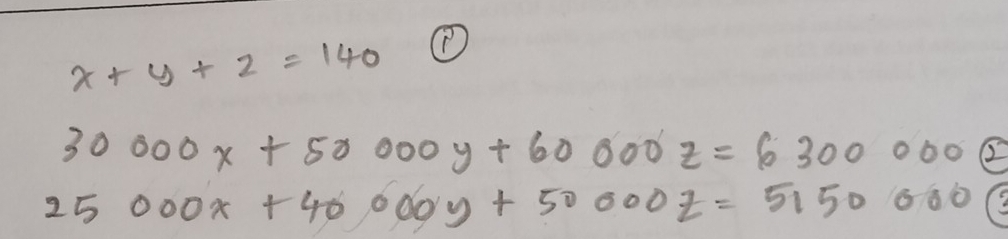 x + y + z = 140 ①
30 000x + 50 000y + 60 000z = 6 300 000 ②
25 000x + 40 000y + 50 000z = 5150 000 ③